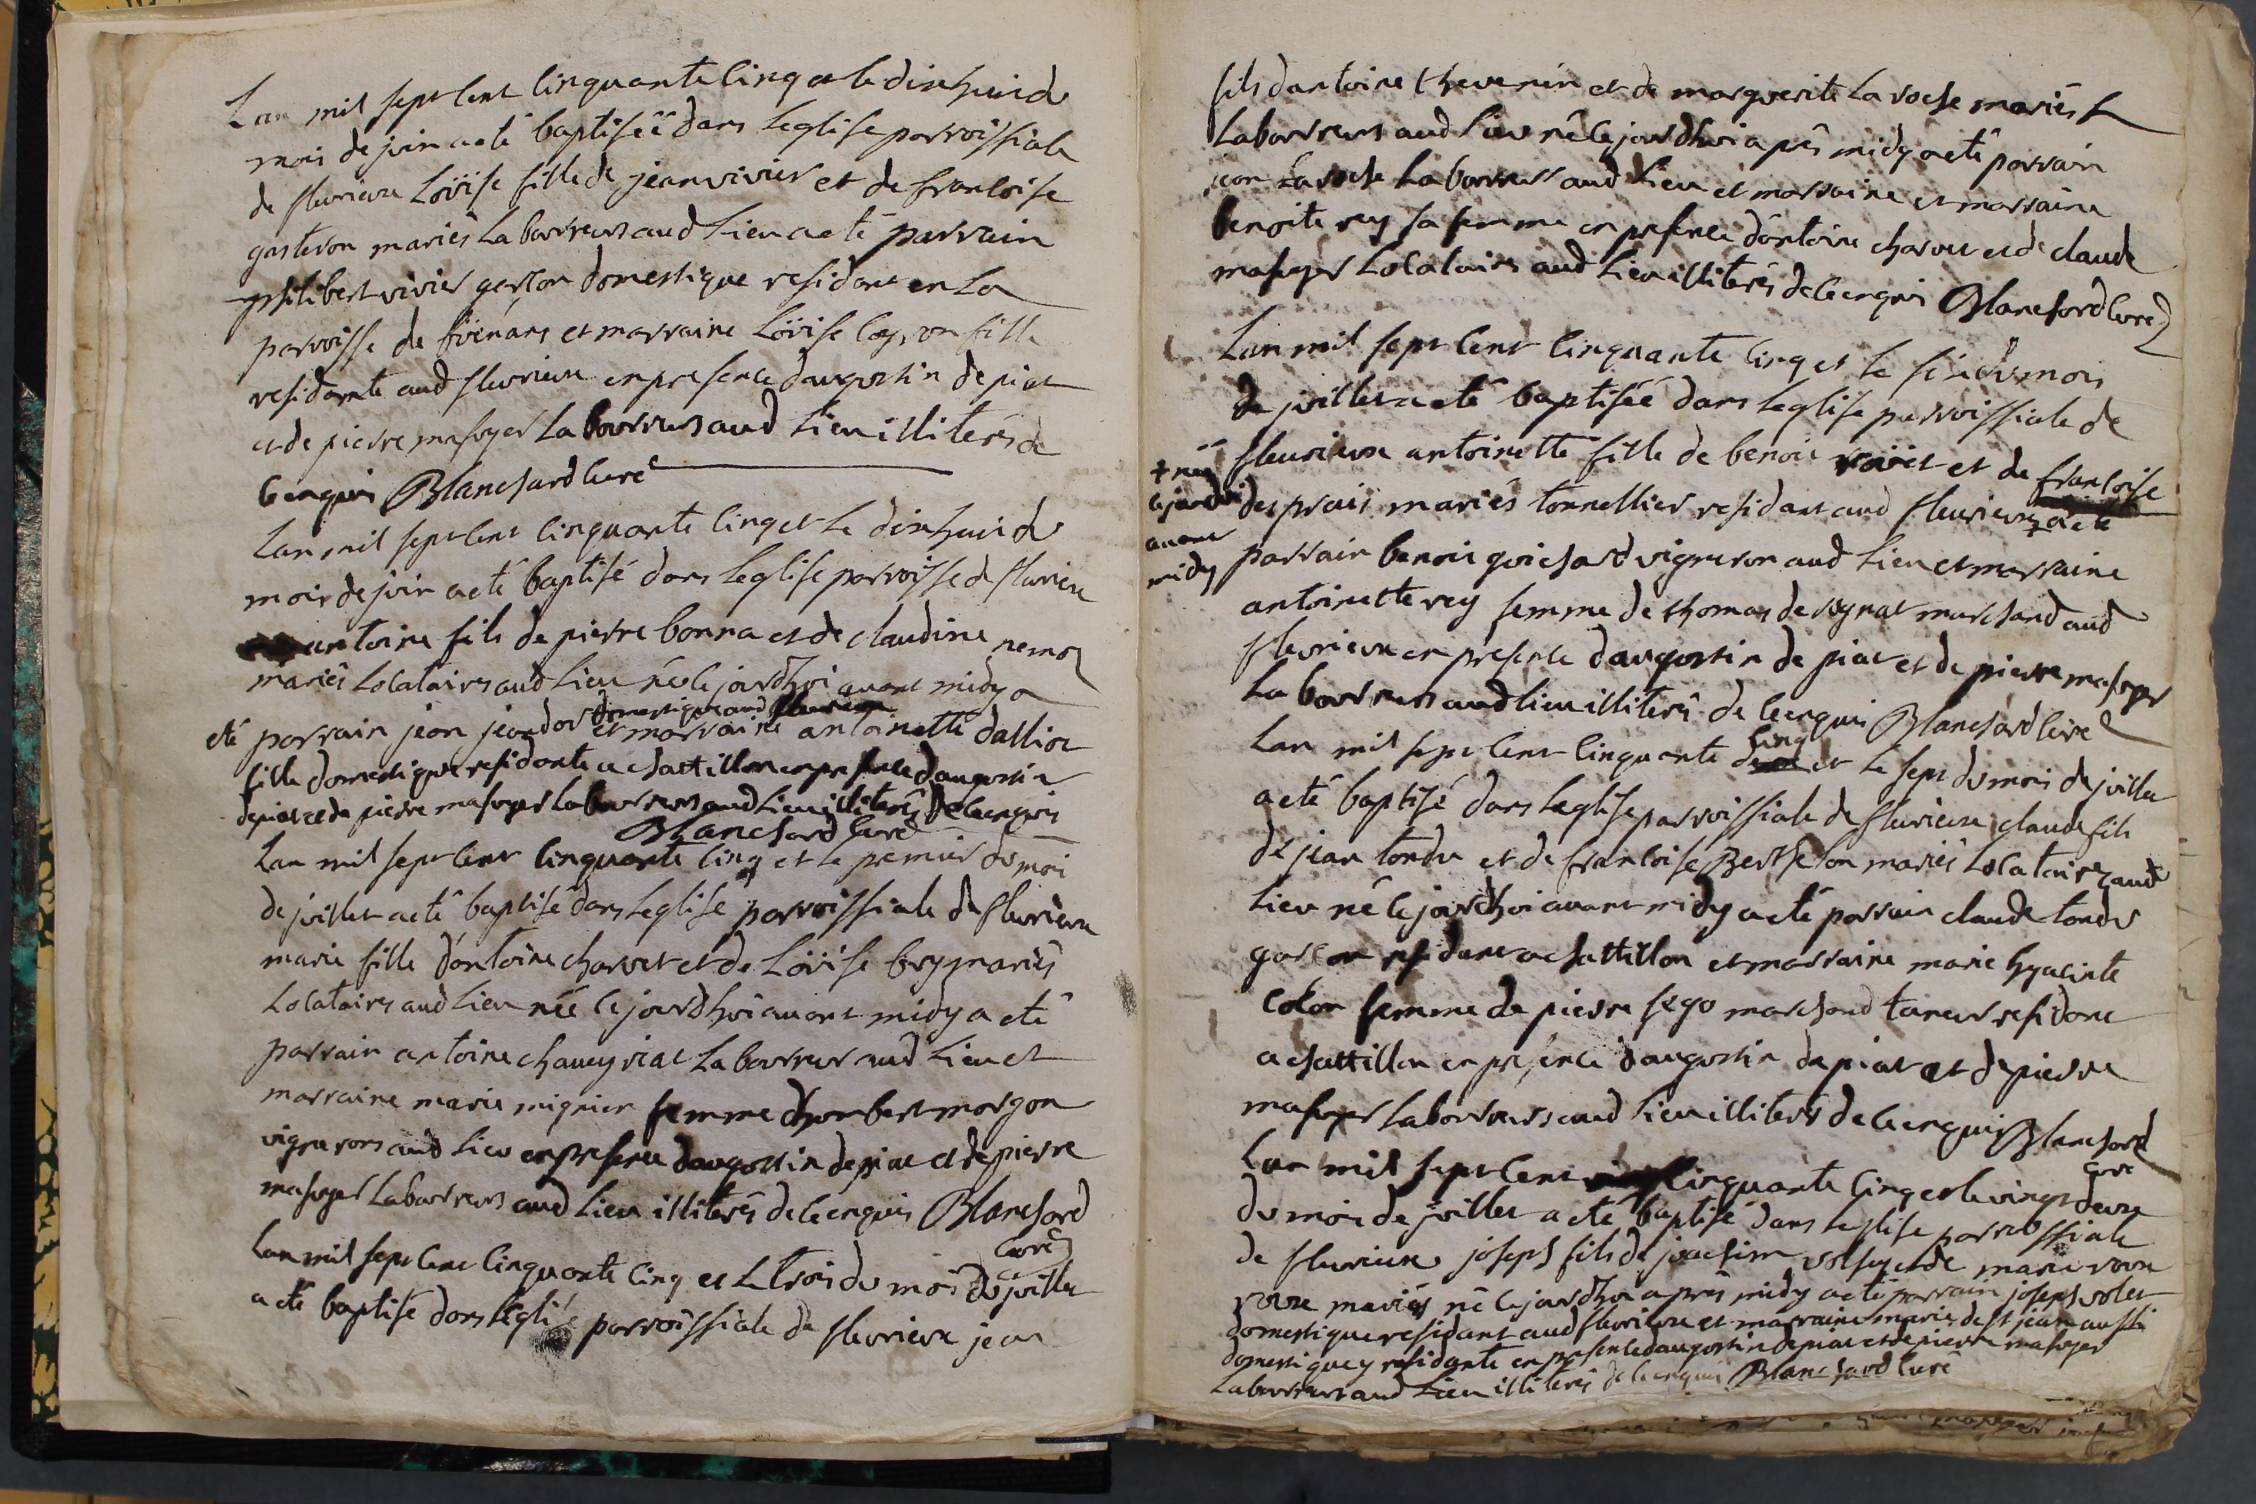 Lan mil sept cent cinquante cinq et le dixhuit du
mois de juin a eté baptiséé dans leglise parroissiale
de fleurieux Loüise fille de jean vivier et de francoise
gasteron mariés Laboureurs aud Lieu a eté parrain
philibert vivier garcon domestique residant en La
parroisse de et marraine Loüise fille
residante aud fleurieux en presence daugustin depiat
et de pierre masoyer Laboureurs aud Lieu illiterés de
ce enquis Blanchard curé
Lan mil sept cent cinquante cinq et Le dixhuit du
mois de juin a eté baptisé dans Leglise parroisse de fleurieux
antoine fils de pierre bonna et de claudine nemoz
mariés Locataires aud Lieu né ce jourdhui avant midy a
domestique aud fleurieux
eté parrain jean jeandor et marraine antoinette dallioz
fille domestique residante a chattillon en presence daugustin
depiat et de pierre masoyer Laboureurs aud Lieu illiterés de ce enquis
Blanchard curé
Lan mil sept cent cinquante cinq et le premier du moi
de juillet a eté baptisé dans Leglise parroissiale de fleurieux
marie fille d'antoine charvet et de Loüise mariés
Locataires aud Lieu néé ce jourdhui avant midy a eté
parrain antoine chaneyriat Laboureur aud Lieu et
marraine marie mignier femme dhombert morgon
vignerons aud Lieu en presence daugustin depiat et de pierre
masoyer Laboureurs aud Lieu illiterés de ce enquis Blanchard
curé
Lan mil sept cent cinquante cinq et le trois du mois du juillet
a eté baptise dans leglise parroissiale de fleurieux jean
fils dantoine thevenin et de marguerite La roche mariés L
Laboureurs aud Lieu né ce jourdhui aprés midy a eté parrain
jean La roche Laboureur aud Lieu et marraine et marraine
benoite rey sa femme en presence d'antoine charvet et de claude
masoyer Locataires aud Lieu illiterés de ce enquis Blanchard curé
Lan mil sept cent cinquante cinq et le six du mois
de juillet a eté baptiséé dans leglise parroissiale de
fleurieux antoinette fille de benoit et de francoise
+ néé
ce jourdhui
avant
midy
desprais mariés tonnellier residant aud fleurieux + a eté
parrain benoit goichard vigneron aud Lieu et marraine
antoinette rey femme de thomas de marchand aud
fleurieux en presence daugustin depiat et de pierre masoyer
Laboureurs aud lieu illiterés de ce enquis Blanchard curé
Lan mil sept cent cinquante cinq et le sept du mois de juillet
a eté baptisé dans leglise parroissiale de fleurieux claude fils
de jean tondu et de francoise Berthelon mariés Locataires aud
Lieu né ce jourdhui avant midy a eté parrain claude tondu
garcon residant a chattillon et marraine marie hyacinte
colon femme de pierre sego marchand taneur residant
a chattillon en presence daugustin depiat et de pierre
masoyer Laboureurs aud Lieu illiterés de ce enquis Blanchard
curé
Lan mil sept cent cinquante cinq et le vingt deux
du mois de juillet a eté baptisé dans leglise parroissiale
de fleurieux joseph fils de joachim et de marie
mariés né ce jourdhui aprés midy a eté parrain joseph
domestique residant aud fleurieux et marraine marie de st jean aussi
domestique y residante en presence daugustin depiat et de pierre masoyer
Laboureurs aud Lieu illiterés de ce enquis Blanchard curé